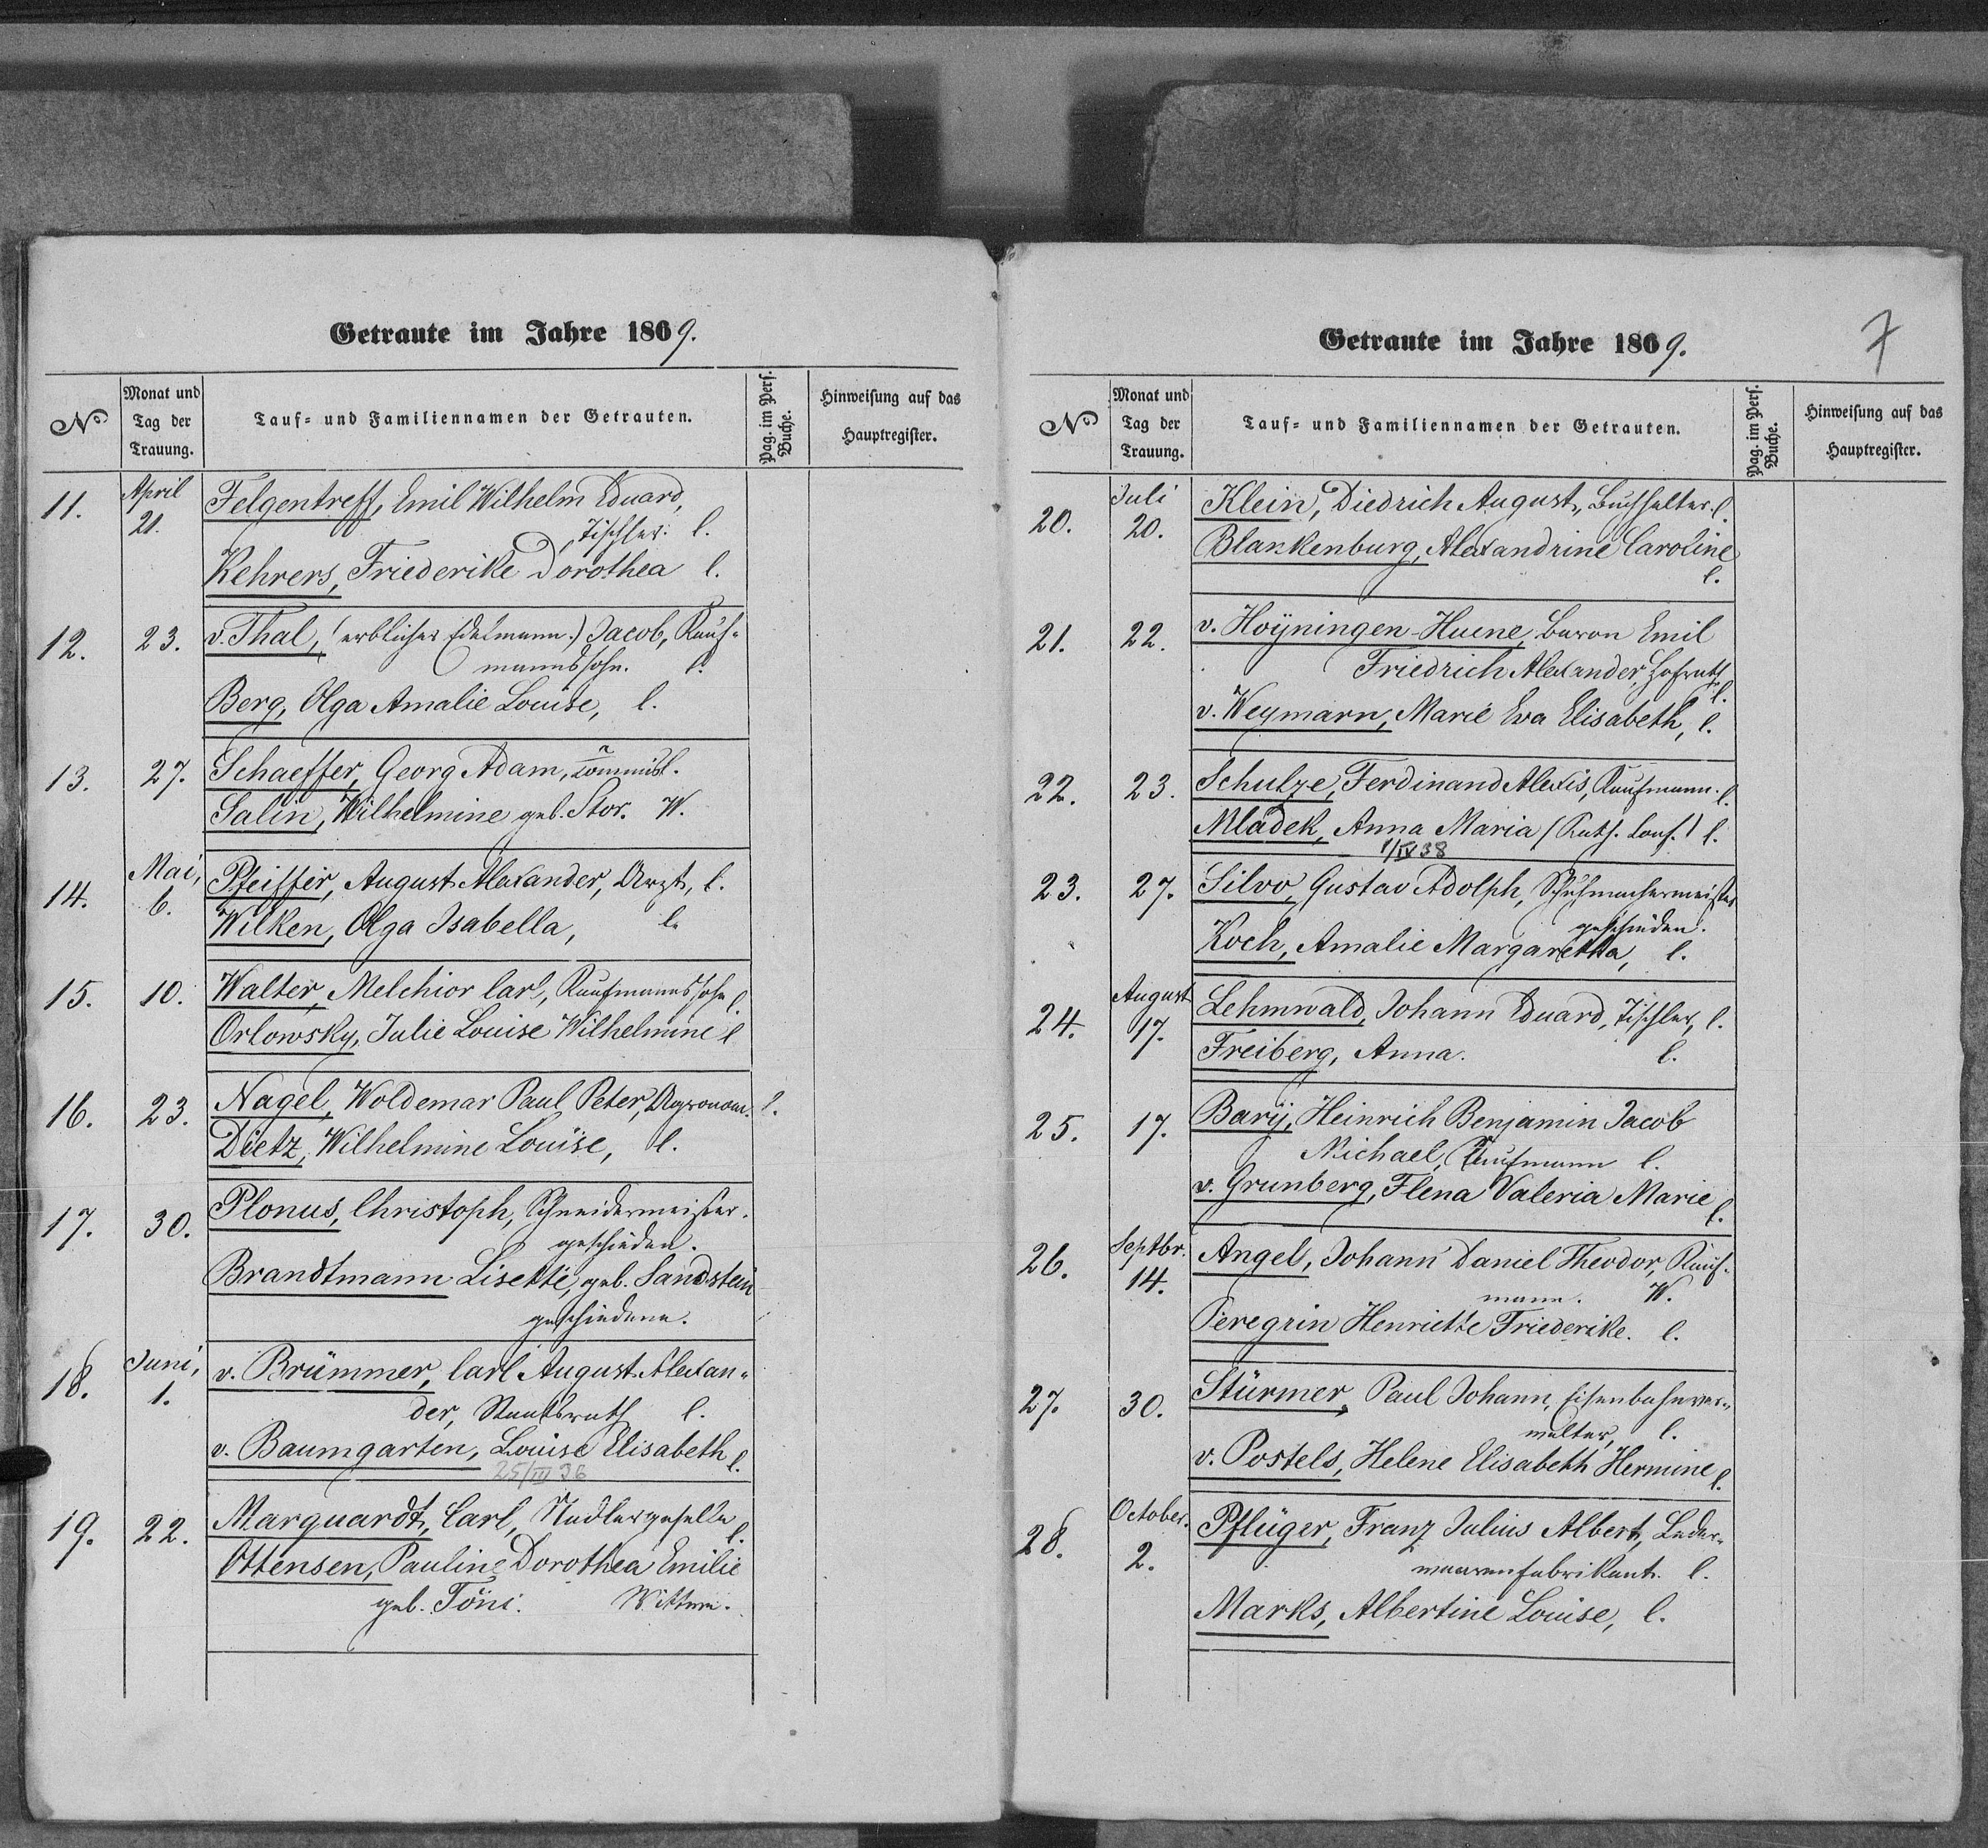 Getraute im Jahre 1869.
No
Monat und
Tag der
Trauung.
Tauf- und Familiennamen der Getrauten.
Pag. im Pers.
Buche.
Hinweisung auf das
Hauptregister.
11. April 21. Felgentreff, Emil Wilhelm Eduard,
Tischler. l.
Kehrers, Friederike Dorothea l.
12. 23. v. Thal, (erblicher Edelmann.) Jacob, Kauf-
mannssohn. l.
Berg, Olga Amalie Louise, l.
13. 27. Schaeffer, Georg Adam, Commis l.
Salin, Wilhelmine geb. Stor. W.
14. Mai, 6. Pfeiffer, August Alexander, Arzt, l.
Wilken, Olga Isabella, l.
15. 10. Walter, Melchior Carl, Kaufmannssohn l.
Orlowsky, Julie Louise Wilhelmine l
16. 23. Nagel, Woldemar Paul Peter, Agronom. l.
Dietz, Wilhelmine Louise, l.
17. 30. Plonus, Christoph, Schneidermeister.
geschieden.
Brandtmann Lisette, geb. Sandstein
geschiedene.
18. Juni, 1. v. Brümmer, Carl August Alexan-
der, Staatsrath l.
v. Baumgarten, Louise Elisabeth l.
25/III 36
19. 22. Marquardt, Carl, Nadlergeselle l.
Ottensen, Pauline Dorothea Emilie
geb. Töni. Wittwe.
Getraute im Jahre 1869.
7
No
Monat und
Tag der
Trauung.
Tauf- und Familiennamen der Getrauten.
Pag. im Pers.
Buche.
Hinweisung auf das
Hauptregister.
20. Juli 20. Klein, Diedrich August, Buchhalter. l.
Blankenburg, Alexandrine Caroline
l.
21. 22. v. Hoÿningen-Huene, Baron Emil
Friedrich Alexander, Hofrath
l.
v. Weymarn, Marie Eva Elisabeth, l.
22. 23. Schulze, Ferdinand Alexis, Kaufmann. l.
Mladek, Anna Maria (Kath. Conf.) l.
1/IV 38
23. 27. Silvo, Gustav Adolph, Schuhmachermeister
geschieden.
Koch, Amalie Margaretha, l.
24. August 17. Lehmwald, Johann Eduard, Tischler, l.
Freiberg, Anna. l.
25. 17. Barÿ, Heinrich Benjamin Jacob
Michael, Kaufmann l.
v. Grunberg, Flena Valeria Marie l.
26. Septbr. 14. Angel, Johann Daniel Theodor, Kauf-
mann. W.
Peregrin Henriette Friederike. l.
27. 30. Stürmer, Paul Johann, Eisenbahnver-
walter, l.
v. Postels, Helene Elisabeth Hermine l.
28. October. 2. Pflüger, Franz Julius Albert, Leder-
waarenfabrikant. l.
Marks, Albertine Louise, l.